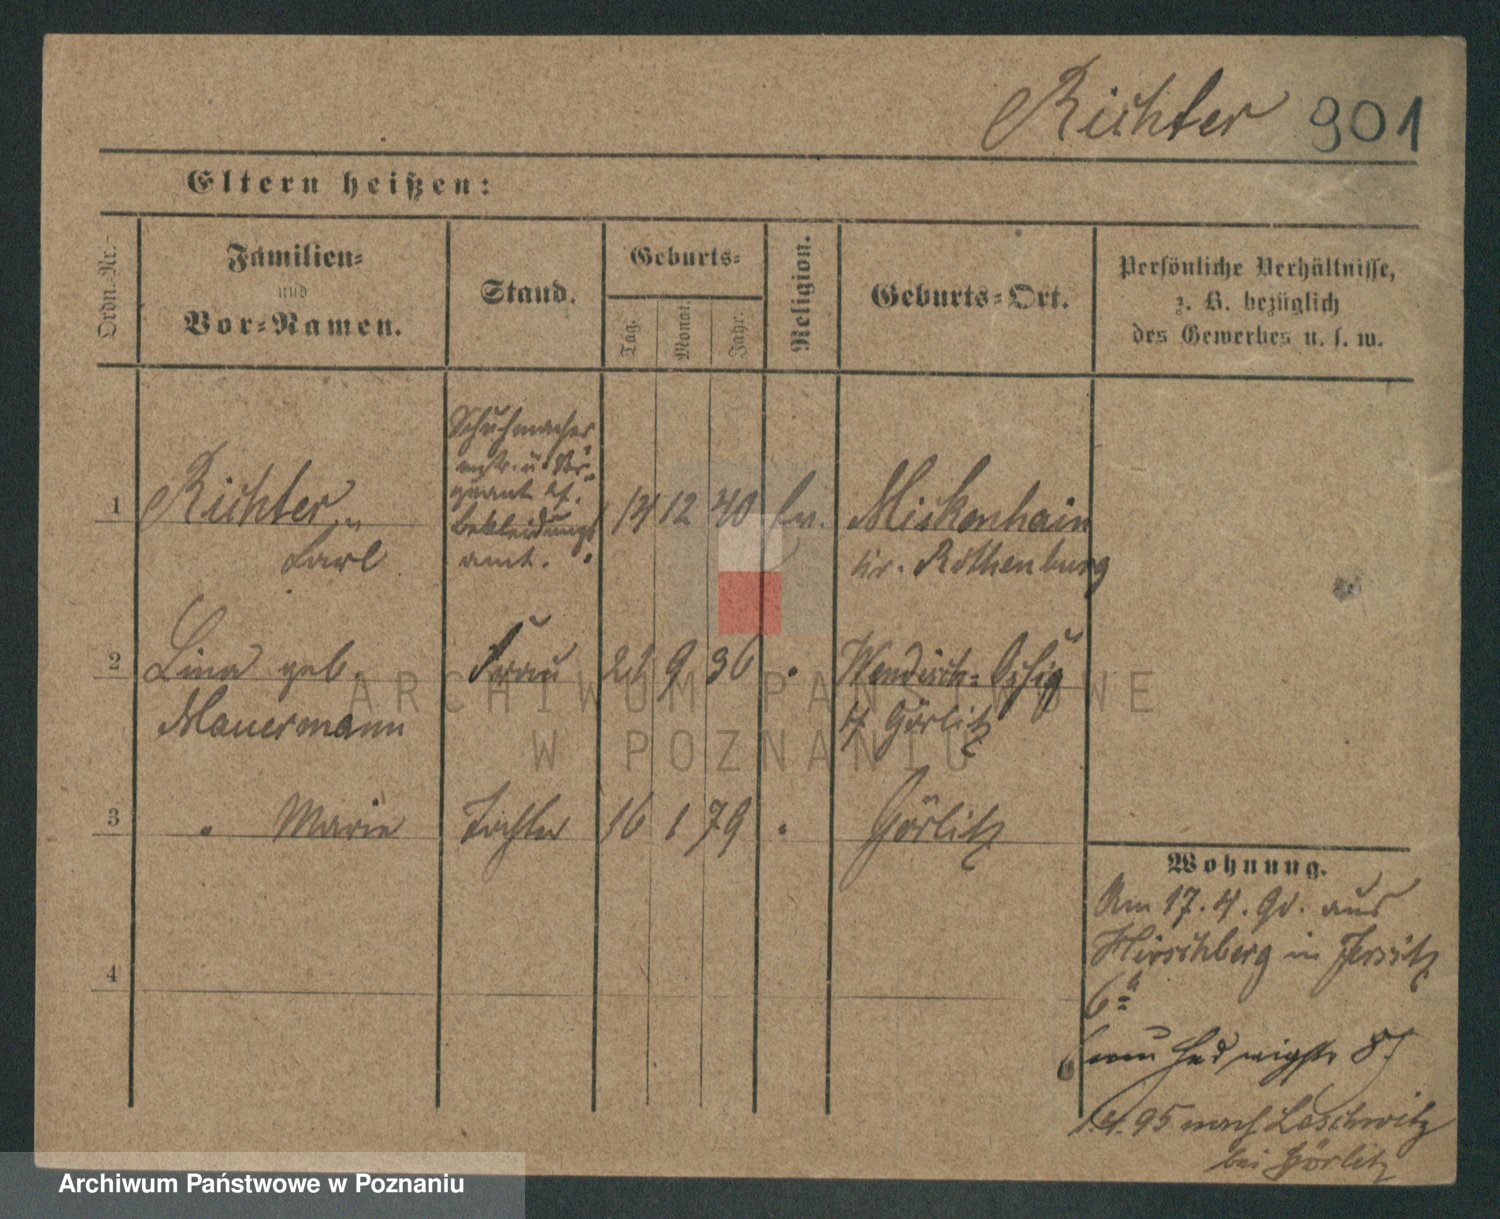 Richter 901
Eltern heißen:
Ordn.-Nr.
Familien-
und
Vor-Namen.
Stand.
Geburts-
Tag.
Monat.
Jahr.
Religion.
Geburts-Ort.
Persönliche Verhältnisse,
z. B. bezüglich
des Gewerbes u. s. w.
1
Richter
Carl
Schuhmacher
bekleidungs
amt.
12 40
ev.
Mickenhain
Kr. Rothenburg
2
Lina geb.
Mauermann
Frau
9 36
Wendisch-Ossig
Görlitz
3
" Marie
Tochter
16 1 79
"
Görlitz
4
Wohnung.
Am 17. 4. aus
Hirschberg in Jersitz
6a
Hedwigstr 8
1.4.95 nach Leschwitz
bei Görlitz
ARCHIWUM PAŃSTWOWE
W POZNANIU
Archiwum Państwowe w Poznaniu